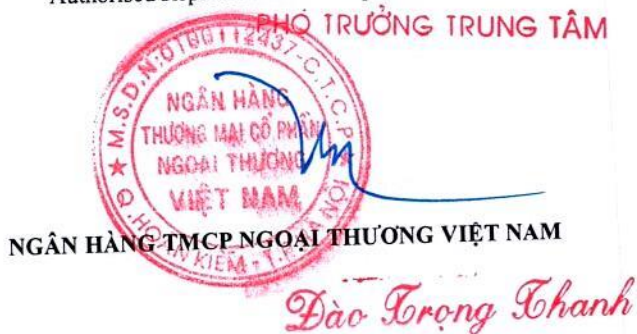 Authorised
PHÓ TRƯỞNG TRUNG TÂM
M.S.D.N:0100112437-C.T.C.P
NGÂN HÀNG
THƯƠNG MẠI CỔ PHẦN
NGOẠI THƯƠNG
VIỆT NAM
Q.HOÀN KIẾM - T.P HÀ NỘI
NGÂN HÀNG TMCP NGOẠI THƯƠNG VIỆT NAM
Đào Trọng Khanh